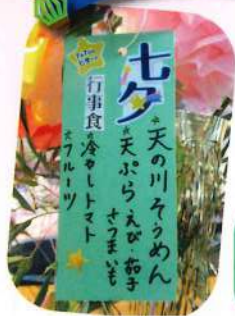 七夕
行事食
☆天の川そうめん
☆天ぷら えび・茄子
さつまいも
☆冷やしトマト
☆フルーツ